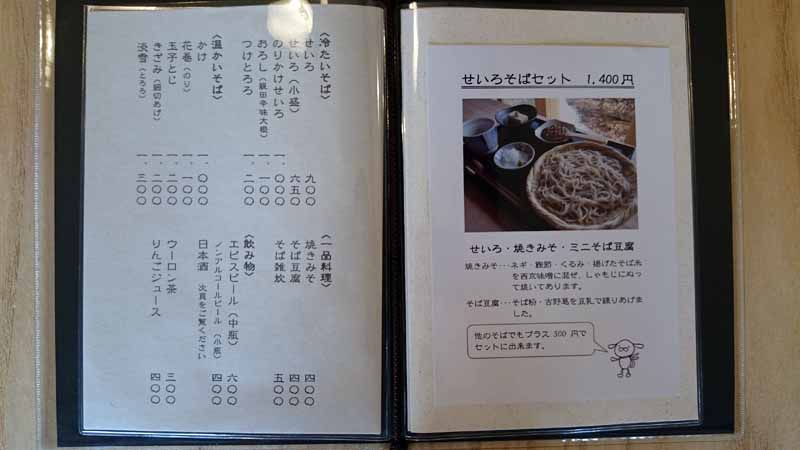 〈冷たいそば〉
せいろ 九〇〇
せいろ（小盛） 六五〇
のりかけせいろ 一、〇〇〇
おろし（親田辛味大根） 一、一〇〇
つけとろろ 一、二〇〇
〈温かいそば〉
かけ 一、〇〇〇
花巻（のり） 一、一〇〇
玉子とじ 一、二〇〇
きざみ（細切あげ） 一、二〇〇
淡雪（とろろ） 一、三〇〇
〈一品料理〉
焼きみそ 四〇〇
そば豆腐 四〇〇
そば雑炊 五〇〇
〈飲み物〉
エビスビール（中瓶） 六〇〇
ノンアルコールビール（小瓶） 四〇〇
日本酒 次頁をご覧ください
ウーロン茶 三〇〇
りんごジュース 四〇〇
せいろそばセット 1,400円
せいろ・焼きみそ・ミニそば豆腐
焼きみそ･･･ネギ・鰹節・くるみ・揚げたそば米
を西京味噌に混ぜ、しゃもじにぬっ
て焼いてあります。
そば豆腐･･･そば粉・吉野葛を豆乳で練りあげま
した。
他のそばでもプラス 500 円で
セットに出来ます。